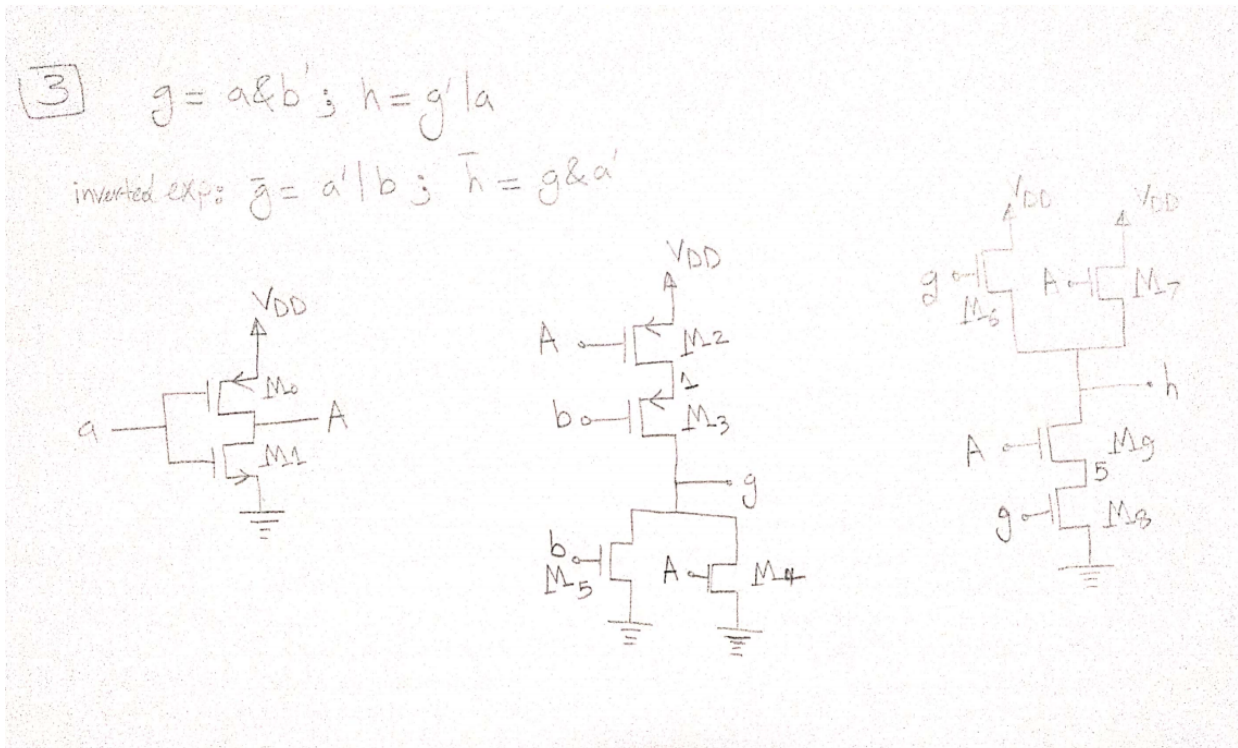 3 g = a&b' ; h = g'|a
inverted exp: g̅ = a'|b ; h̅ = g&a'
VDD
M0
a
A
M1
VDD
A
M2
1
b
M3
g
b
M5
A
M4
VDD
VDD
g
M6
A
M7
h
A
M9
5
g
M8